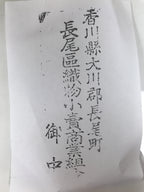 香川縣大川郡長尾町
長尾區織物小賣商業組合
御中